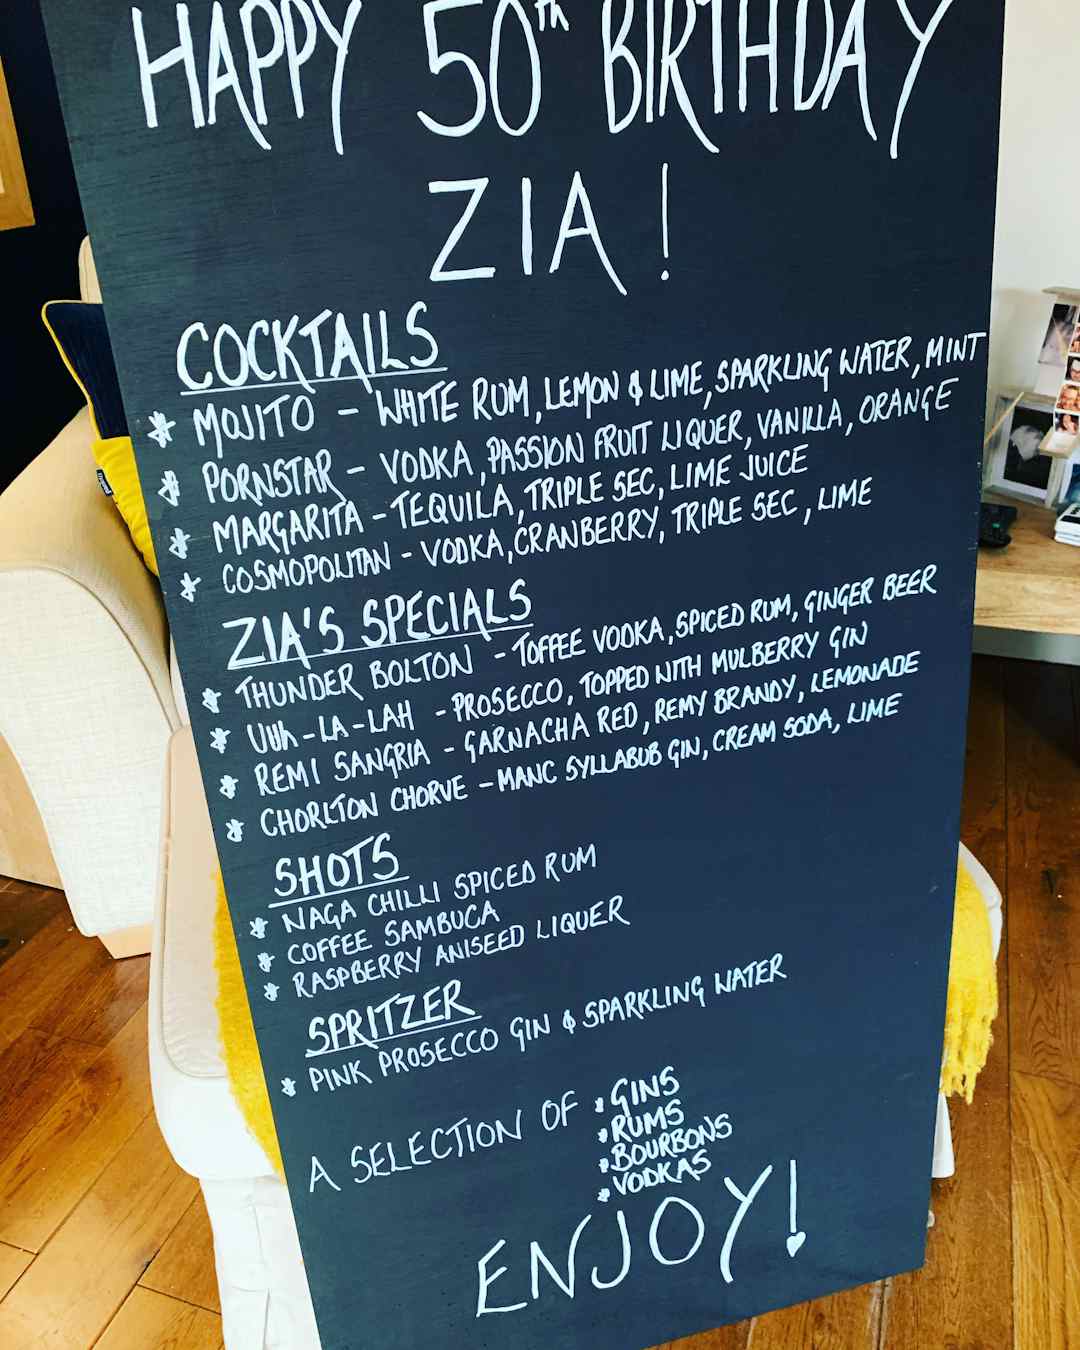 HAPPY 50th BIRTHDAY
ZIA!
COCKTAILS
* MOJITO - WHITE RUM, LEMON & LIME, SPARKLING WATER, MINT
* PORNSTAR - VODKA, PASSION FRUIT LIQUER, VANILLA, ORANGE
* MARGARITA - TEQUILA, TRIPLE SEC, LIME JUICE
* COSMOPOLITAN - VODKA, CRANBERRY, TRIPLE SEC, LIME
ZIA'S SPECIALS
* THUNDER BOLTON - TOFFEE VODKA, SPICED RUM, GINGER BEER
* UUH-LA-LAH - PROSECCO, TOPPED WITH MULBERRY GIN
* REMI SANGRIA - GARNACHA RED, REMY BRANDY, LEMONADE
* CHORLTON CHORVE - MANC SYLLABUB GIN, CREAM SODA, LIME
SHOTS
* NAGA CHILLI SPICED RUM
* COFFEE SAMBUCA
* RASPBERRY ANISEED LIQUER
SPRITZER
* PINK PROSECCO GIN & SPARKLING WATER
A SELECTION OF * GINS
* RUMS
* BOURBONS
* VODKAS
ENJOY!